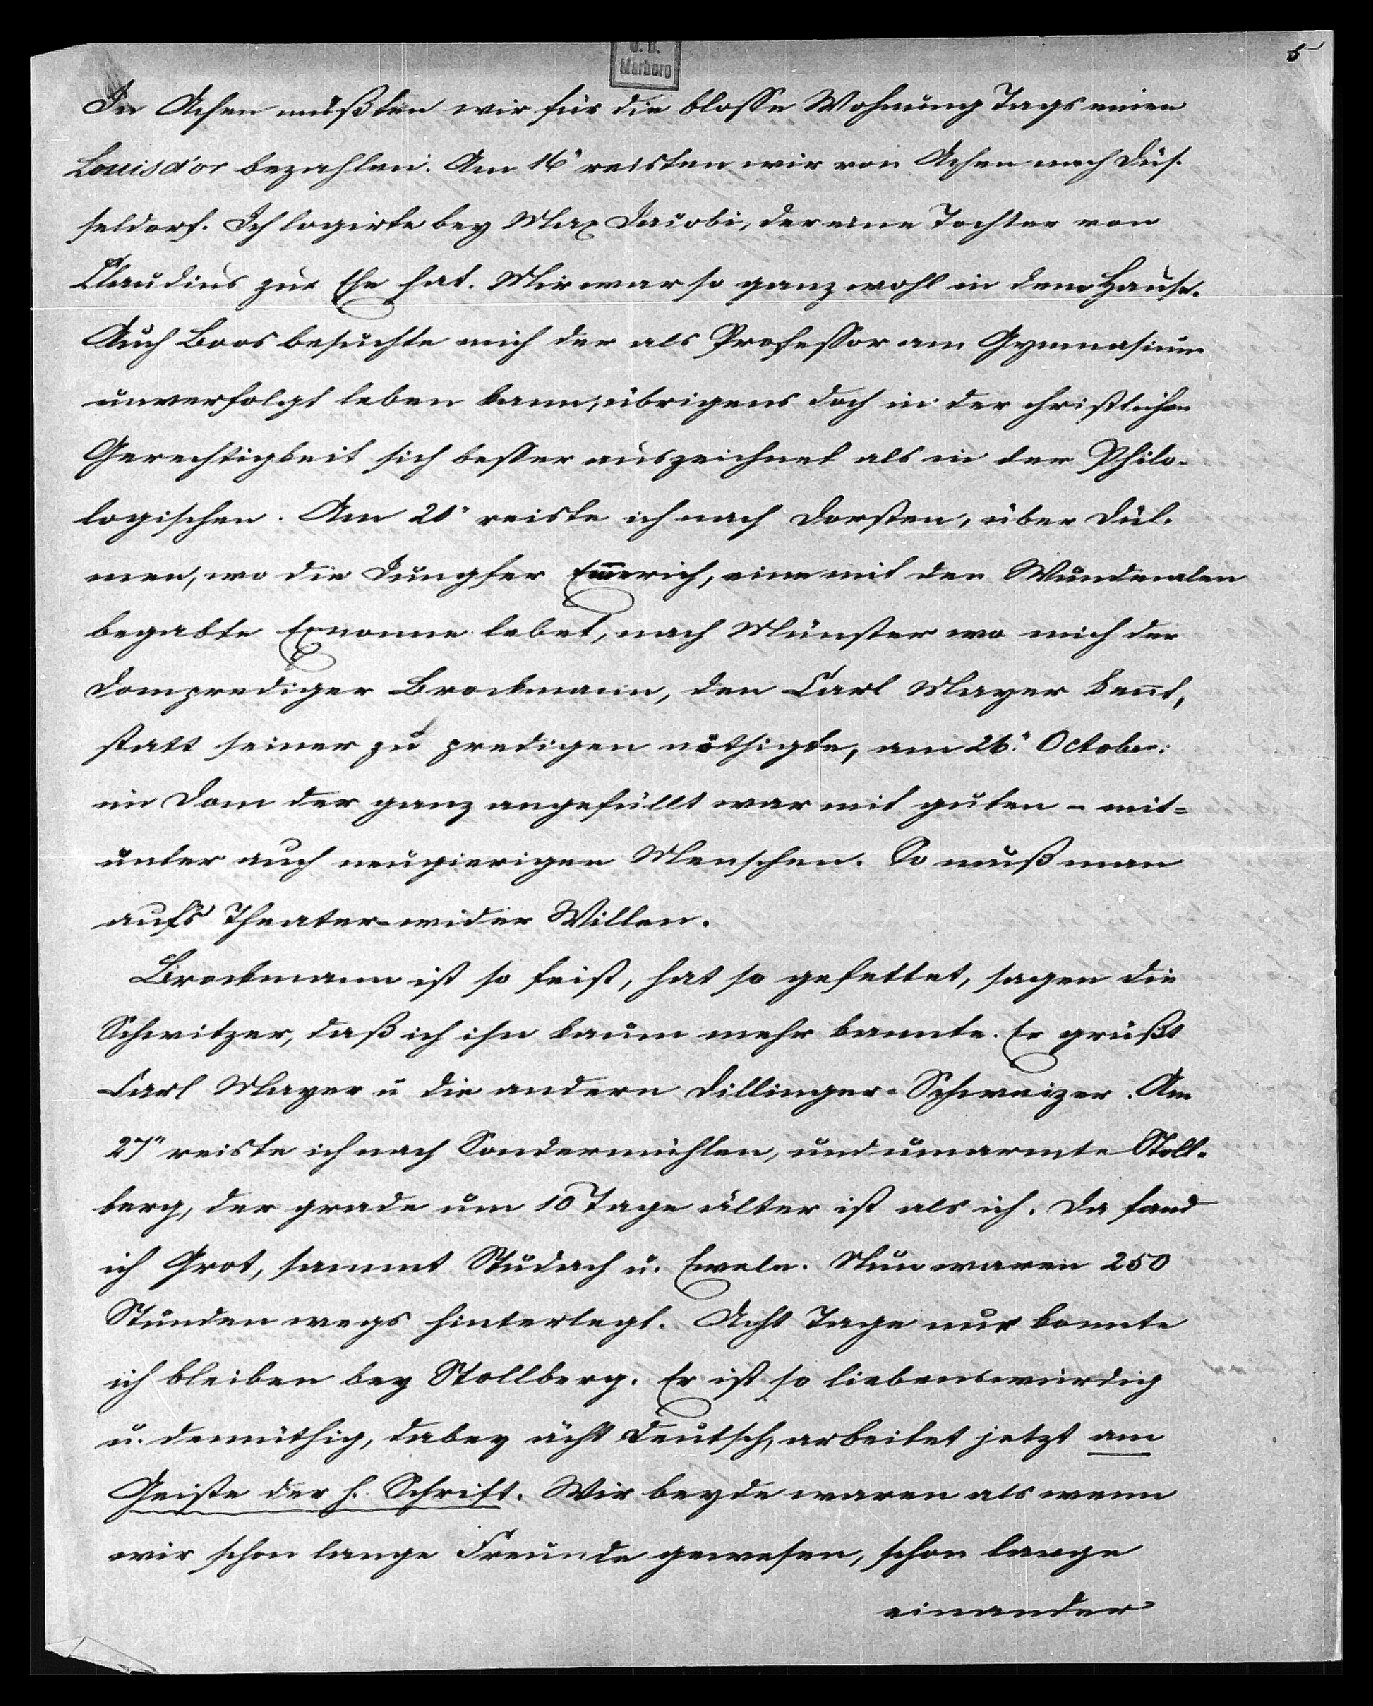 5
U. B.
Marburg
In Achen mußten wir für die blosse Wohnung Tags einen
Louisd'or bezahlen. Am 16" reisten wir von Achen nach Düs-
seldorf. Ich logirte bey Max Jacobi, der eine Tochter von
Claudius zur Ehe hat. Mir war so ganz wohl in dem Hause.
Auch Boos besuchte mich der als Professor am Gymnasium
unverfolgt leben kann, übrigens doch in der christlichen
Gerechtigkeit sich besser auszeichnet als in der Philo-
logischen. Am 21" reiste ich nach Dorsten, über Dül-
men, wo die Jungfer Emerich, eine mit den Wundmalen
begabte Exnonne lebet, nach Münster wo mich der
Domprediger Brockmann, den Carl Mayer kennt,
statt seiner zu predigen nöthigte, am 26." October:
im Dom der ganz angefüllt war mit guten - mit=
unter auch neugierigen Menschen. So muß man
aufs Theater wider Willen.
Brockmann ist so feist, hat so gefettet, sagen die
Schwitzer, daß ich ihn kaum mehr kannte. Er grüßt
Carl Mayer u die andern Dillinger-Schweizer. Am
27" reiste ich nach Sondermühlen, und umarmte Stoll-
berg, der grade um 10 Tage älter ist als ich. Da fand
ich Grot, sammt Studach u. Eweln. Nun waren 250
Stunden wegs hinterlegt. Acht Tage nur konnte
ich bleiben bey Stollberg. Er ist so liebenswürdig
u. demüthig, dabey ächt deutsch, arbeitet jetzt am
Geiste der h. Schrift. Wir beyde waren als wenn
wir schon lange Freunde gewesen, schon lange
einander